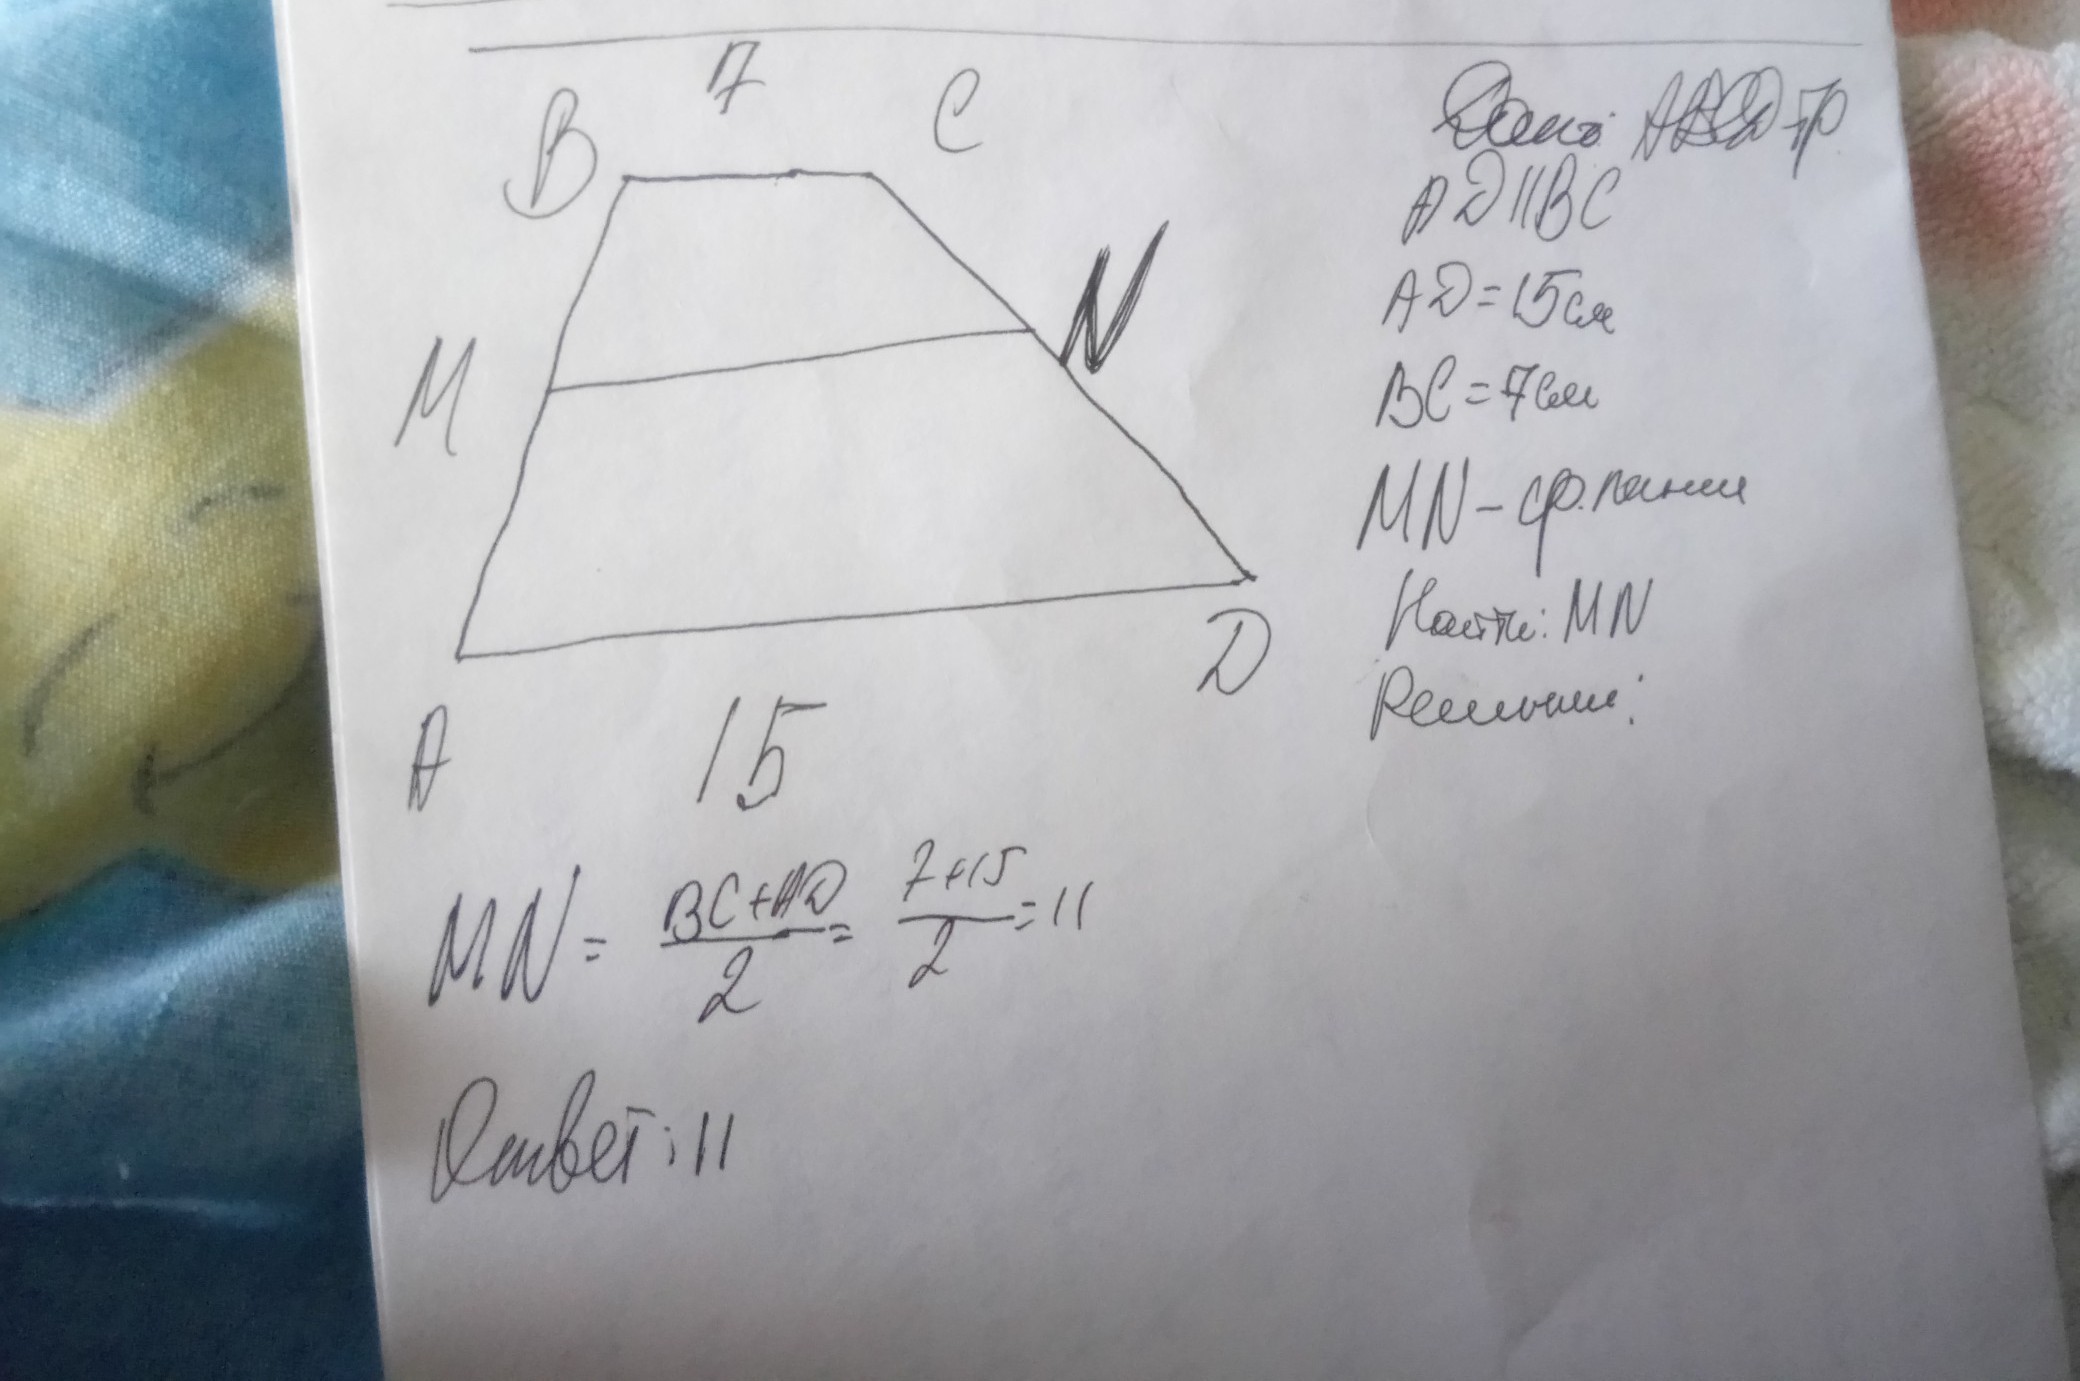 7
B C
M N
A D
15
Дано: ABCD-тр
AD||BC
AD=15см
BC=7см
MN-ср.линия
Найти: MN
Решение:
MN= BC+AD/2= 7+15/2=11
Ответ: 11